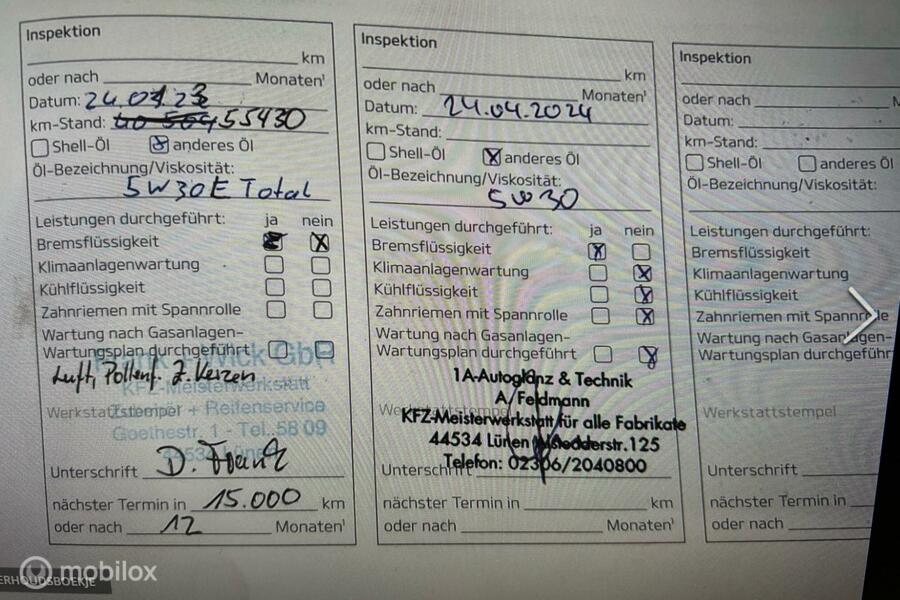 Inspektion
km
oder nach Monaten¹
Datum: 24.07.23
km-Stand: 40 504 55430
Shell-Öl anderes Öl
Öl-Bezeichnung/Viskosität:
5W30E Total
Leistungen durchgeführt: ja nein
Bremsflüssigkeit
Klimaanlagenwartung
Kühlflüssigkeit
Zahnriemen mit Spannrolle
Wartung nach Gasanlagen-
Wartungsplan durchgeführt
GmbH
Luft, Pollenf. Z. Kerzen
KFZ-Meisterwerkstatt
Werkstattstempel + Reifenservice
Goethestr. 1 - Tel. 58 09
Unterschrift D. Franz
nächster Termin in 15.000 km
oder nach 12 Monaten¹
Inspektion
km
oder nach Monaten¹
Datum: 24.04.2024
km-Stand:
Shell-Öl anderes Öl
Öl-Bezeichnung/Viskosität:
5W30
Leistungen durchgeführt: ja nein
Bremsflüssigkeit
Klimaanlagenwartung
Kühlflüssigkeit
Zahnriemen mit Spannrolle
Wartung nach Gasanlagen-
Wartungsplan durchgeführt
1A-Autoglanz & Technik
A. Feldmann
Werkstattstempel
KFZ-Meisterwerkstatt für alle Fabrikate
44534 Lünen
Telefon: 02306/2040800
Unterschrift
nächster Termin in km
oder nach Monaten¹
Inspektion
oder nach
Datum:
km-Stand:
Shell-Öl anderes Öl
Öl-Bezeichnung/Viskosität:
Leistungen durchgeführt:
Bremsflüssigkeit
Klimaanlagenwartung
Kühlflüssigkeit
Zahnriemen mit Spannrolle
Wartung nach Gasanlagen-
Wartungsplan durchgeführt
Werkstattstempel
Unterschrift
nächster Termin in
oder nach
ERHOUDSBOEKJE
mobilox